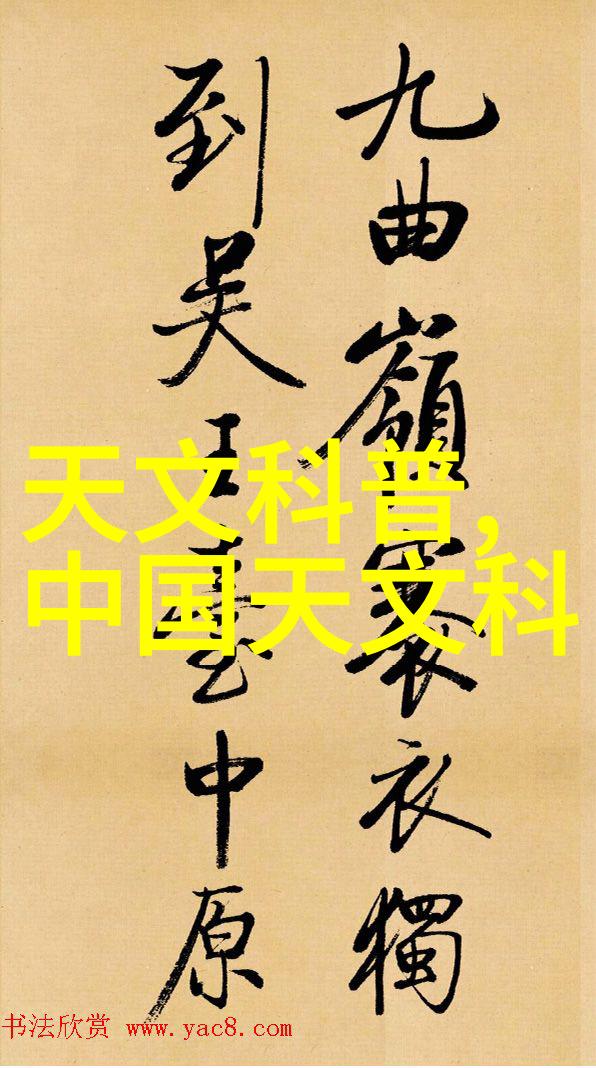 九曲嶺褰衣獨
到吴王臺中原
天文科普,
中国天文科
书法欣赏 www.yac8.com